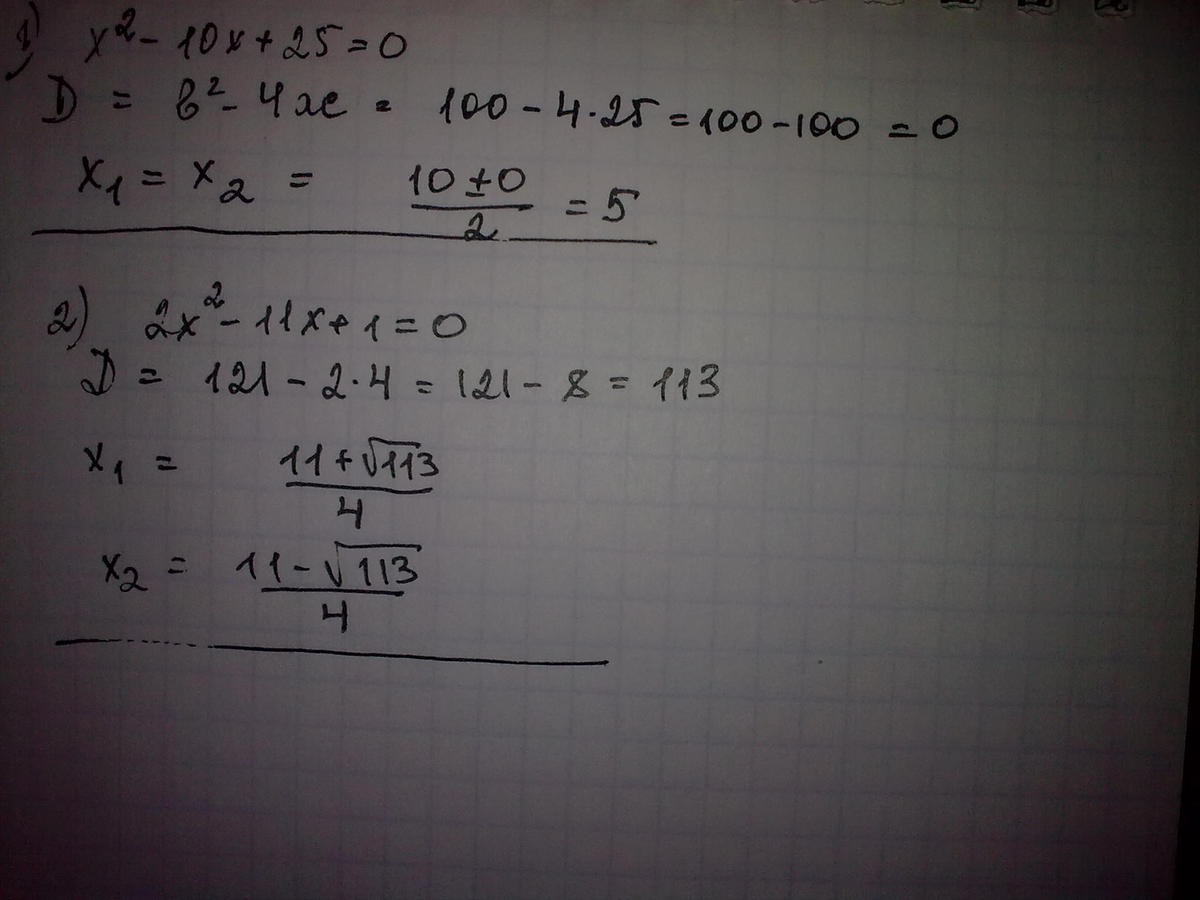 1) x² - 10x + 25 = 0
D = b² - 4ac = 100 - 4·25 = 100 - 100 = 0
x₁ = x₂ = (10 ± 0)/2 = 5
2) 2x² - 11x + 1 = 0
D = 121 - 2·4 = 121 - 8 = 113
x₁ = (11 + √113)/4
x₂ = (11 - √113)/4